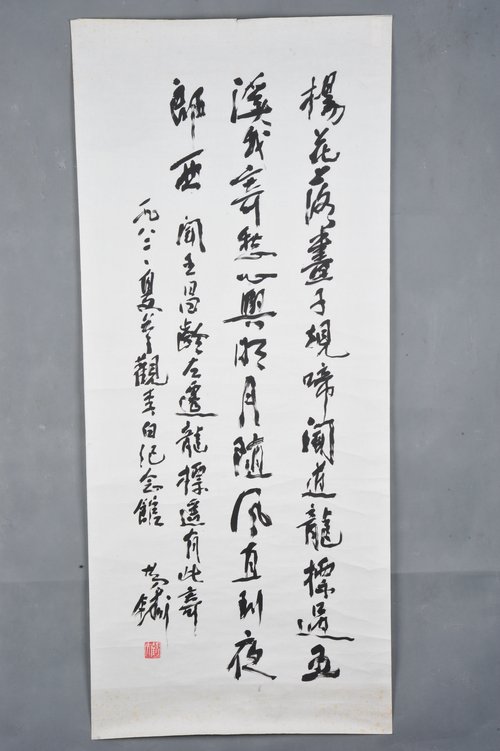 楊花落盡子規啼聞道龍標過五
溪我寄愁心與明月隨風直到夜
郎西 聞王昌齡左遷龍標遙有此寄
一九八二、夏参觀李白纪念館